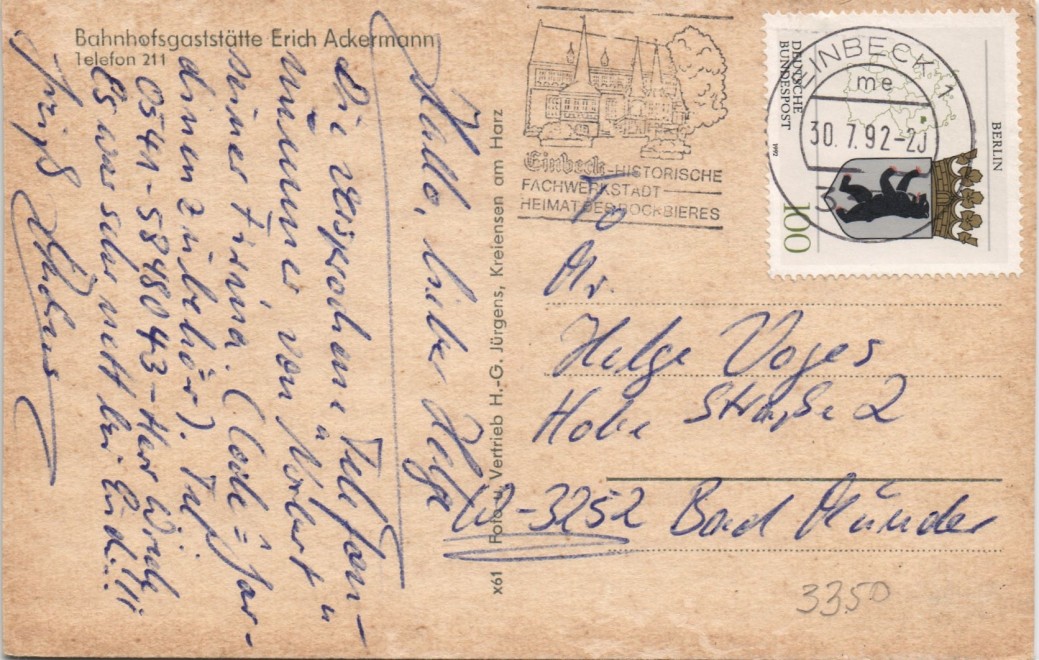 Bahnhofsgaststätte Erich Ackermann
Telefon 211
Hallo, lieber Helge
die versprochene Telefon-
nummer von Norbert u
seiner Firma (Code = Gar-
dinenzubehör). Tel
0541-5848043-Herr
Es war sehr nett bei Euch!!!
Gruß
x61 Foto u. Vertrieb H.-G. Jürgens, Kreiensen am Harz
Einbeck-HISTORISCHE
FACHWERKSTADT
HEIMAT DES BOCKBIERES
EINBECK 1
me
30.7.92-20
DEUTSCHE
BUNDESPOST
1992
BERLIN
100
To
Mr.
Helge Voges
Hohe Straße 2
W-3252 Bad Münder
3350